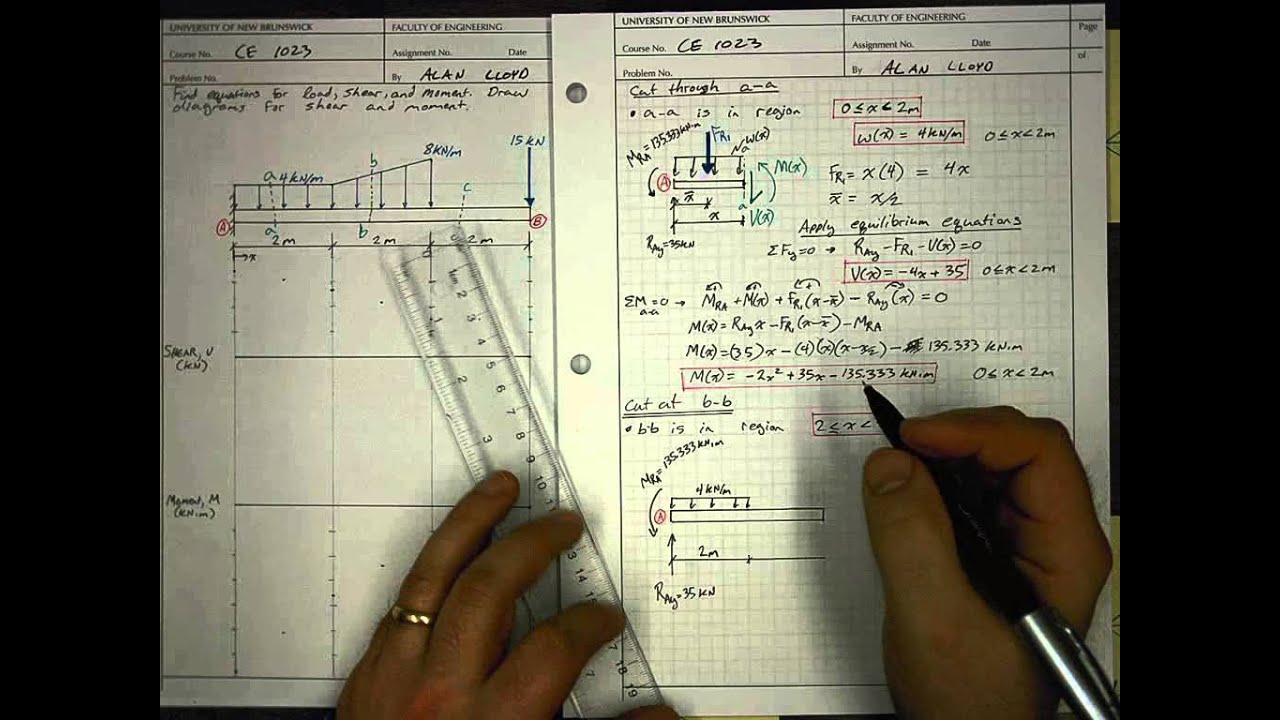 UNIVERSITY OF NEW BRUNSWICK
FACULTY OF ENGINEERING
Course No. CE 1023
Assignment No.
Date
Problem No.
By ALAN LLOYD
Find equations for load, shear, and moment. Draw
diagrams for shear and moment.
15 kN
8 kN/m
b
a 4 kN/m
c
A
B
a
b
c
2m
2m
2m
x
SHEAR, V
(kN)
Moment, M
(kN·m)
UNIVERSITY OF NEW BRUNSWICK
FACULTY OF ENGINEERING
Page
Course No. CE 1023
Assignment No.
Date
of
Problem No.
By ALAN LLOYD
Cut through a-a
• a-a is in region 0≤x<2m
w(x) = 4kN/m 0≤x<2m
MRA=135.333kN·m
FR1
w(x)
a
M(x)
A
x̄
a
x
V(x)
RAy=35kN
FR1 = x(4) = 4x
x̄ = x/2
Apply equilibrium equations
ΣFy=0 → RAy-FR1-V(x)=0
V(x)=-4x+35 0≤x<2m
ΣM a-a =0 → MRA+M(x)+FR1(x-x̄)-RAy(x)=0
M(x)=RAyx-FR1(x-x̄)-MRA
M(x)=(35)x-(4)(x)(x-x/2)-135.333 kN·m
M(x)= -2x²+35x-135.333 kN·m 0≤x<2m
Cut at b-b
• b-b is in region 2≤x<
MRA=135.333kN·m
4kN/m
A
2m
RAy=35 kN
1
2
3
3
4
5
6
7
8
9
10
11
14
17
18
19